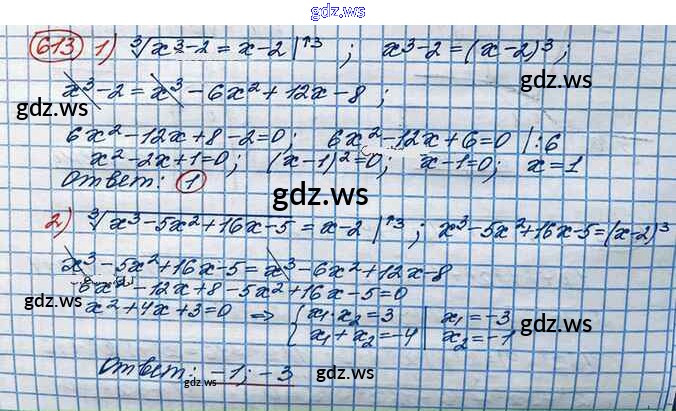 gdz.ws
613 1) ∛x³-2 = x-2 |↑3 ; x³-2=(x-2)³;
gdz.ws gdz.ws
x³-2 = x³-6x²+12x-8 ;
6x²-12x+8-2=0; 6x²-12x+6=0 |:6
x²-2x+1=0; (x-1)²=0; x-1=0; x=1
Ответ: 1
gdz.ws
2) ∛x³-5x²+16x-5 = x-2 |↑3 ; x³-5x²+16x-5=(x-2)³
x³-5x²+16x-5=x³-6x²+12x-8
6x²-12x+8-5x²+16x-5=0
gdz.ws
x²+4x+3=0 ⇒ { x₁·x₂=3 | x₁=-3
x₁+x₂=-4 | x₂=-1
gdz.ws
Ответ: -1; -3
gdz.ws gdz.ws